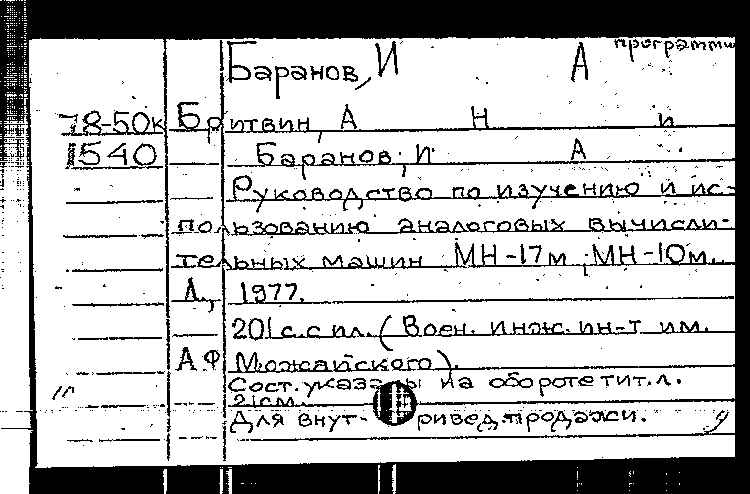 программи
Баранов, И А
78-50к Бритвин, А Н и
1540 Баранов, И А
Руководство по изучению и ис-
пользованию аналоговых вычисли-
тельных машин МН-17м, МН-10м.
Л., 1977.
201 с. с ил. (Воен. инж. ин-т им.
А Ф Можайского).
Сост. указаны на обороте тит. л.
21см.
Для внут- ривед. продажи.